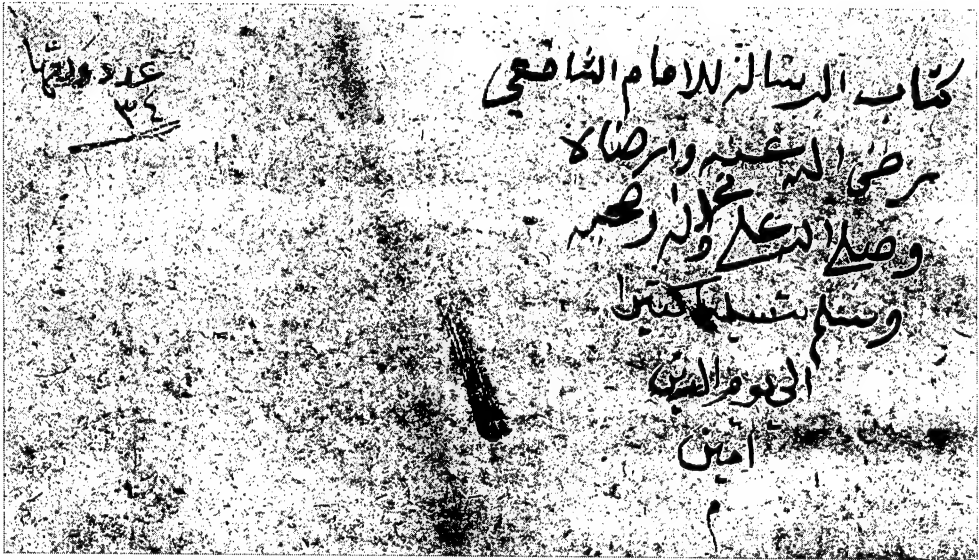 كتاب الرسالة للامام الشافعي
رضي الله عنه وارضاه
وصلى الله على محمد واله وصحبه
وسلم تسليما كثيرا
الى يوم الدين
امين
م
عدد ورقها
٣٤